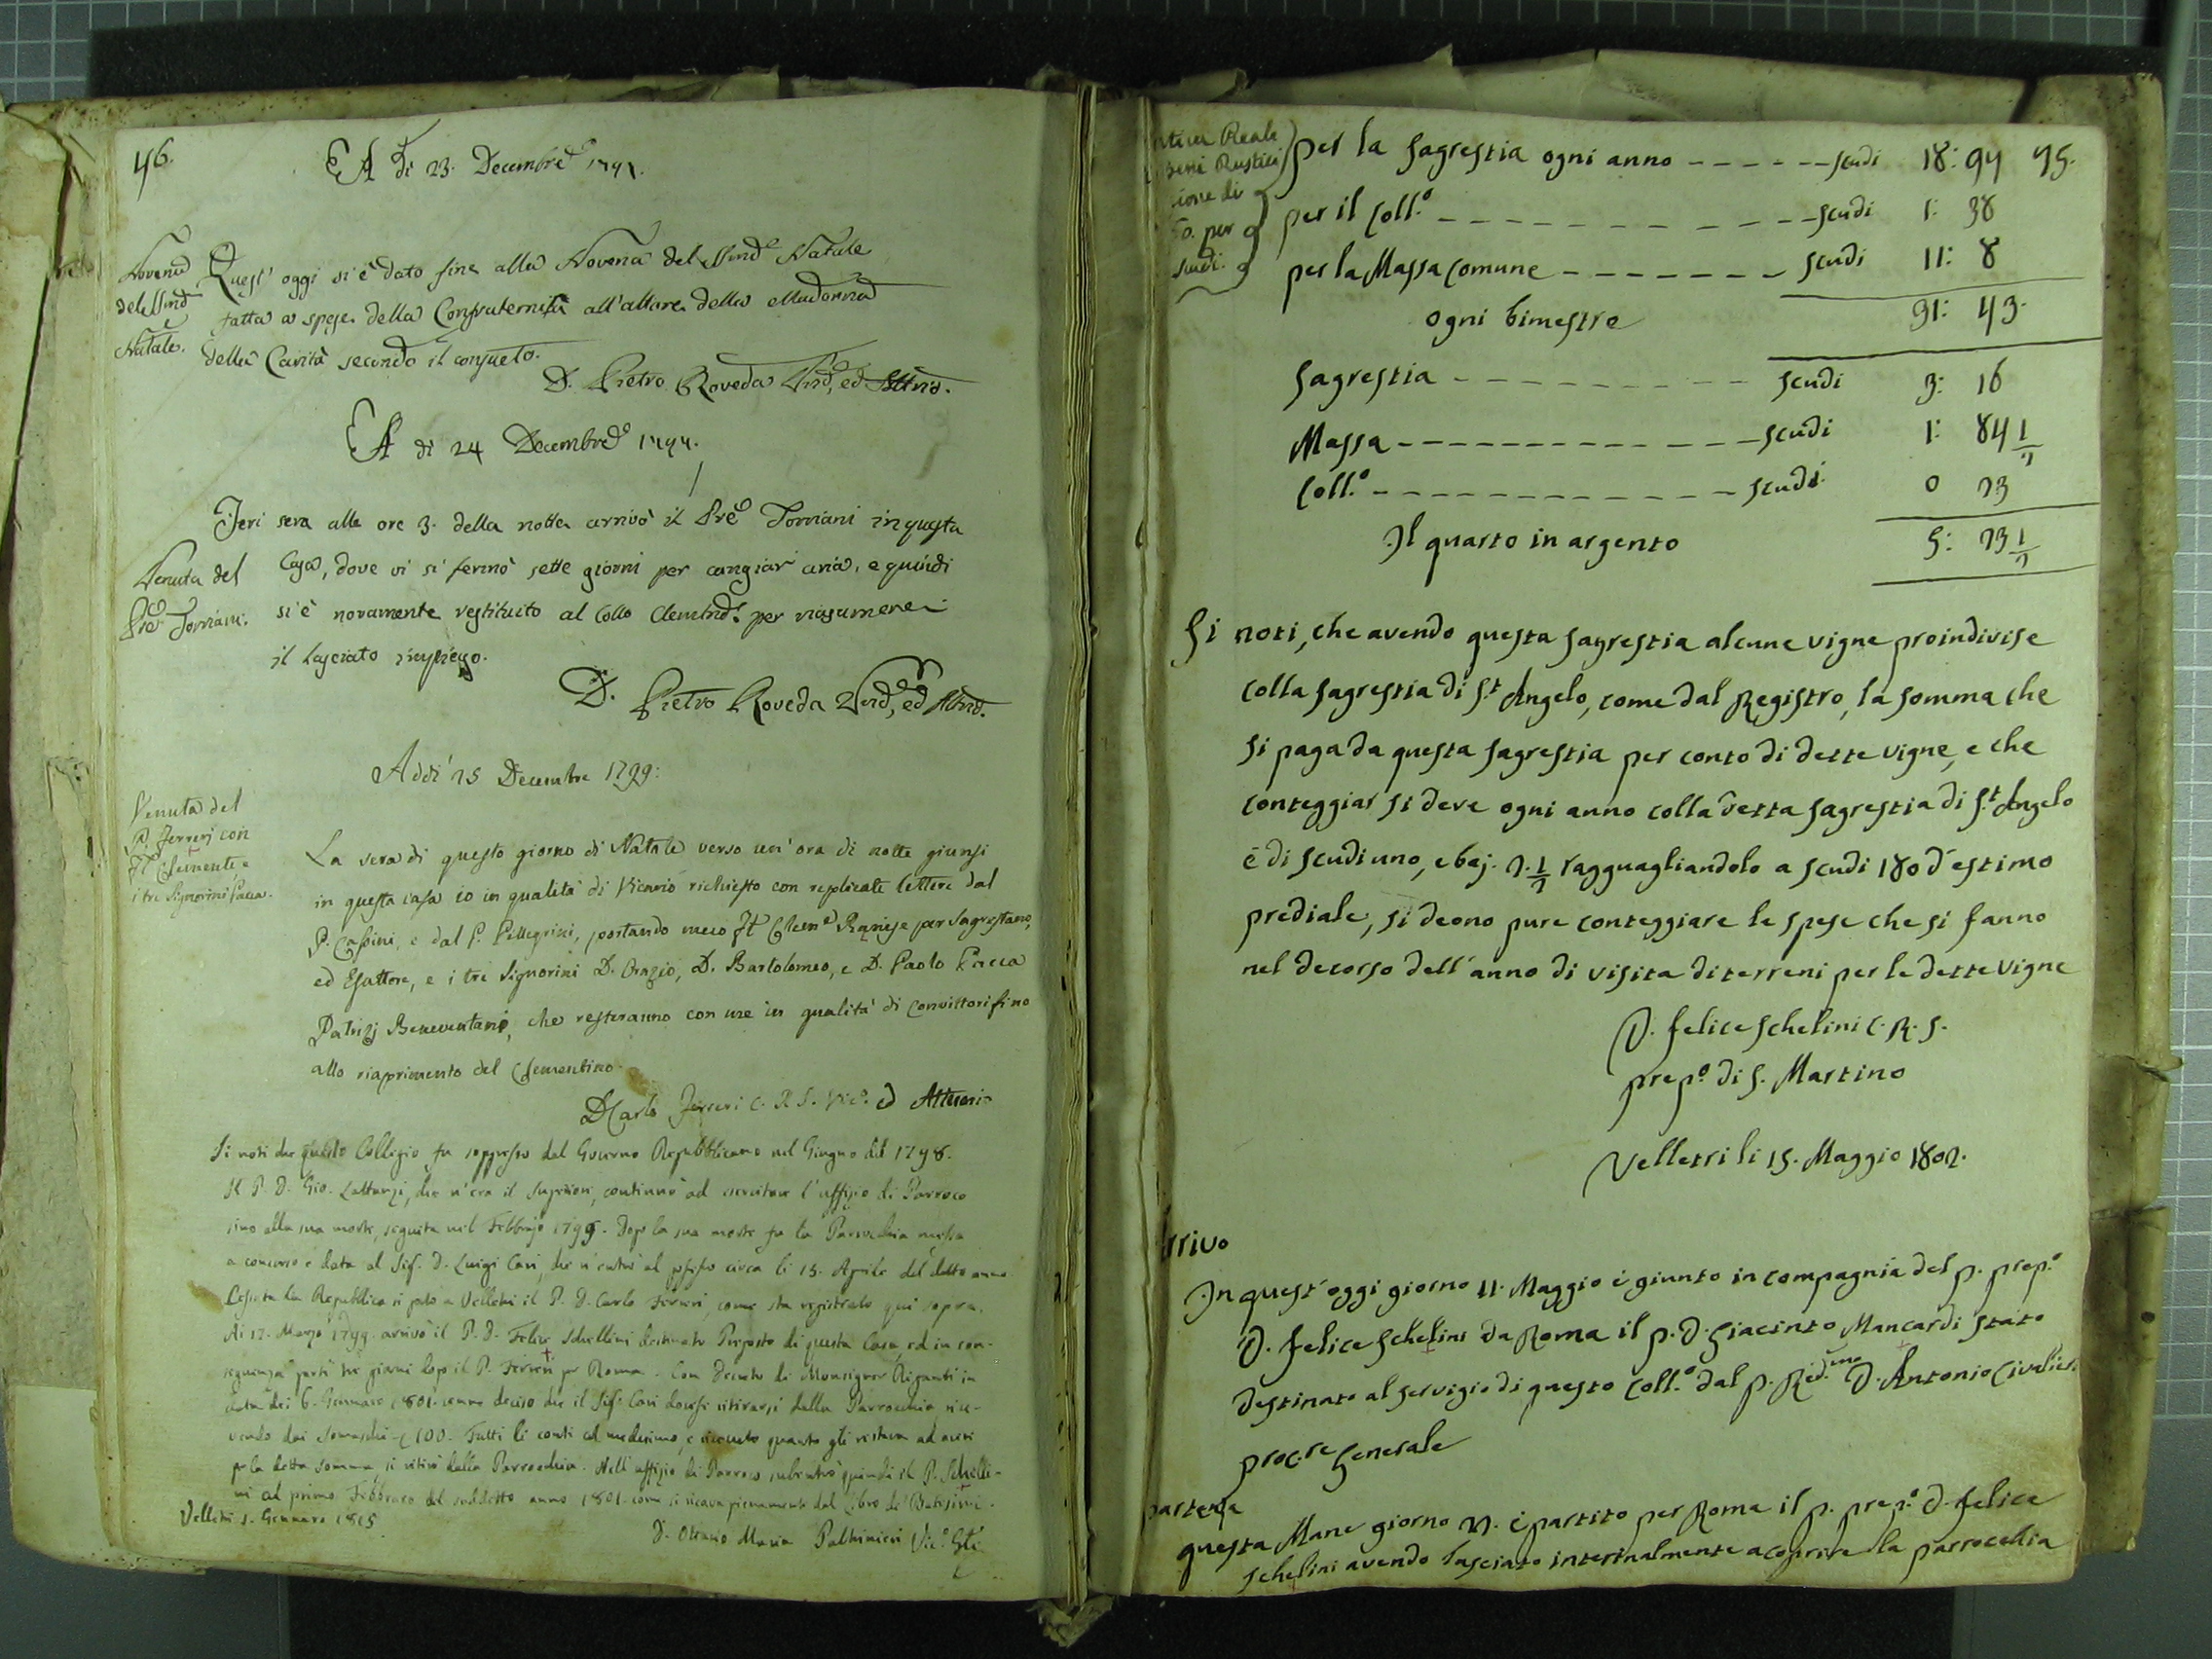 46.
A di 23. Decembre 1797.
Novena
del SSmo
Natale.
Quest' oggi si è dato fine alla Novena del SSmo Natale
fatta a spese della Confraternità all'altare della Madonna
della Carità secondo il consueto.
D. Pietro Roveda Vic.º, ed Att.rio.
A di 24 Decembre 1797.
Venuta del
Pre Torriani.
Jeri sera alle ore 3. della notte arrivò il Pre Torriani in questa
Casa, dove vi si fermò sette giorni per cangiar aria, e quindi
si è novamente restituito al Collo Clemno per
il lasciato impiego.
D. Pietro Roveda Vic.º, ed Att.rio.
Addì 25 Decembre 1799:
Venuta del
P. Ferreri con
Fr. Clemente, e
i tre Signorini Pacca.
La sera di questo giorno di Natale verso un'ora di notte giunsi
in questa casa io in qualità di Vicario richiesto con replicate lettere dal
P. Cassini, e dal P. Pellegrini, portando meco Fr. Clem.e per Sagrestano,
ed Esattore, e i tre Signorini D. Orazio, D. Bartolomeo, e D. Paolo Pacca
Patrizj Beneventani, che resteranno con me in qualità di Convittori fino
allo riaprimento del Clementino.
D Carlo Ferreri C. R. S. Vic.º ed Attuario
Si noti che questo Collegio fu soppresso dal Governo Repubblicano nel Giugno del 1798.
Il P. D. Gio. Lattanzj, che n'era il Superiore, continuò ad esercitare l'uffizio di Parroco
sino alla sua morte, seguita nel Febbrajo 1799. Dopo la sua morte fu la Parrocchia messa
a concorso e data al Sig. D. Luigi Cari, che n'entrò al possesso circa li 15. Aprile del detto anno
Cessata la Repubblica si portò a Velletri il P. D. Carlo Ferreri, come sta registrato qui sopra.
Ai 17. Marzo 1799. arrivò il P. D. Felice Schellini destinato Preposto di questa Casa, ed in con-
seguenza partì tre giorni dopo il P. Ferreri per Roma. Con Decreto di Monsignor Riganti in
data dei 6. Gennaro 1801. venne deciso che il Sig. Cari dovesse ritirarsi dalla Parrocchia, rice-
vendo dai Somaschi 100. Fatti li conti col medesimo, e ricevuto quanto gli restava ad avere
per la detta somma, si ritirò dalla Parrocchia. Nell'uffizio di Parroco subentrò quindi il P. Schelli-
ni al primo Febbraro del suddetto anno 1801. come si ricava pienamente dal Libro de' Batesimi.
Velletri 1. Gennaro 1815
D. Ottavio Maria Paltrinieri Vic.º Gle
Reale
Beni Rustici
per
scudi.
per la Sagrestia ogni anno ------ scudi 18: 94 75.
per il Coll.º ------ scudi 1: 38
per la Massa Comune ------ scudi 11: 8
ogni bimestre 31: 43.
Sagrestia ------ scudi 3: 16
Massa ------ scudi 1: 84 1/2
Coll.º ------ scudi 0 23
Il quarto in argento 5: 23 1/2
Si noti, che avendo questa Sagrestia alcune vigne proindivise
colla Sagrestia di S.t Angelo, come dal Registro, la somma che
si paga da questa Sagrestia per conto di dette vigne, e che
conteggiar si deve ogni anno colla detta Sagrestia di S.t Angelo
è di scudi uno, e baj. 2. 1/2 ragguagliandolo a scudi 180 d'estimo
prediale, si deono pure conteggiare le spese che si fanno
nel decorso dell'anno di visita di terreni per le dette vigne
D. Felice Schelini C. R. S.
prep.º di S. Martino
Velletri li 15. Maggio 1802.
rrivo
In quest'oggi giorno 11. Maggio è giunto in compagnia del p. prep.º
D. Felice Schelini da Roma il p. D. Giacinto Mancardi stato
destinato al servigio di questo Coll.º dal p. Red.mo D. Antonio Civalieri
proc.re Generale
partenza
questa Mane giorno 21. è partito per Roma il p. prep.º D. Felice
Schelini avendo lasciato interinalmente a coprire la parrocchia